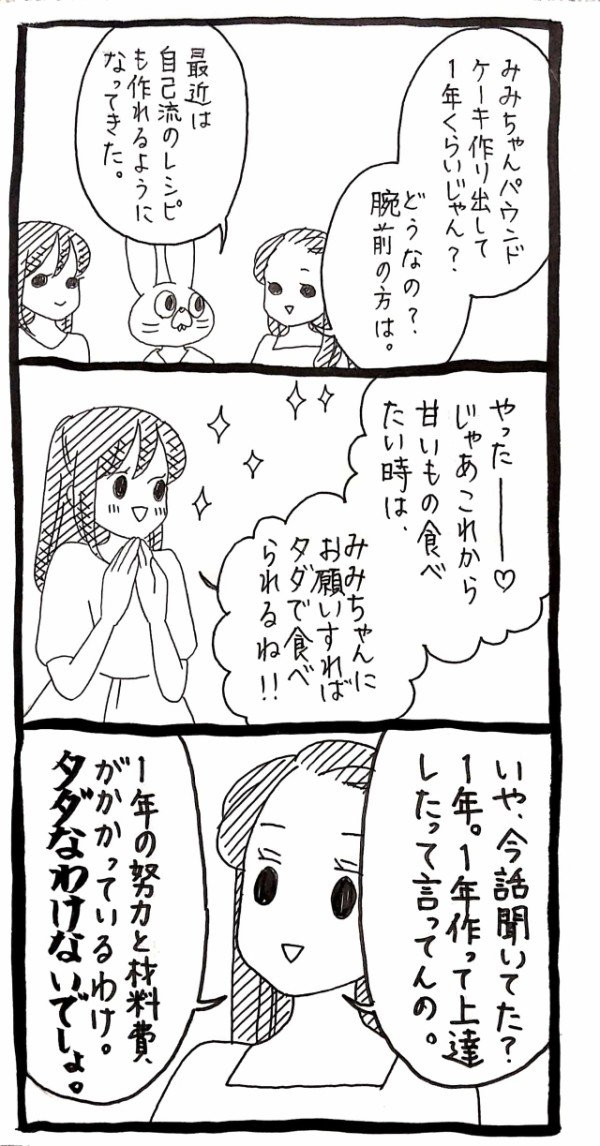 みみちゃんパウンド
ケーキ作り出して
1年くらいじゃん?
どうなの?
腕前の方は。
最近は
自己流のレシピ
も作れるように
なってきた。
やったー♡
じゃあこれから
甘いもの食べ
たい時は、
みみちゃんに
お願いすれば
タダで食べ
られるね!!
いや、今話聞いてた?
1年。1年作って上達
したって言ってんの。
1年の努力と材料費
がかかっているわけ。
タダなわけないでしょ。